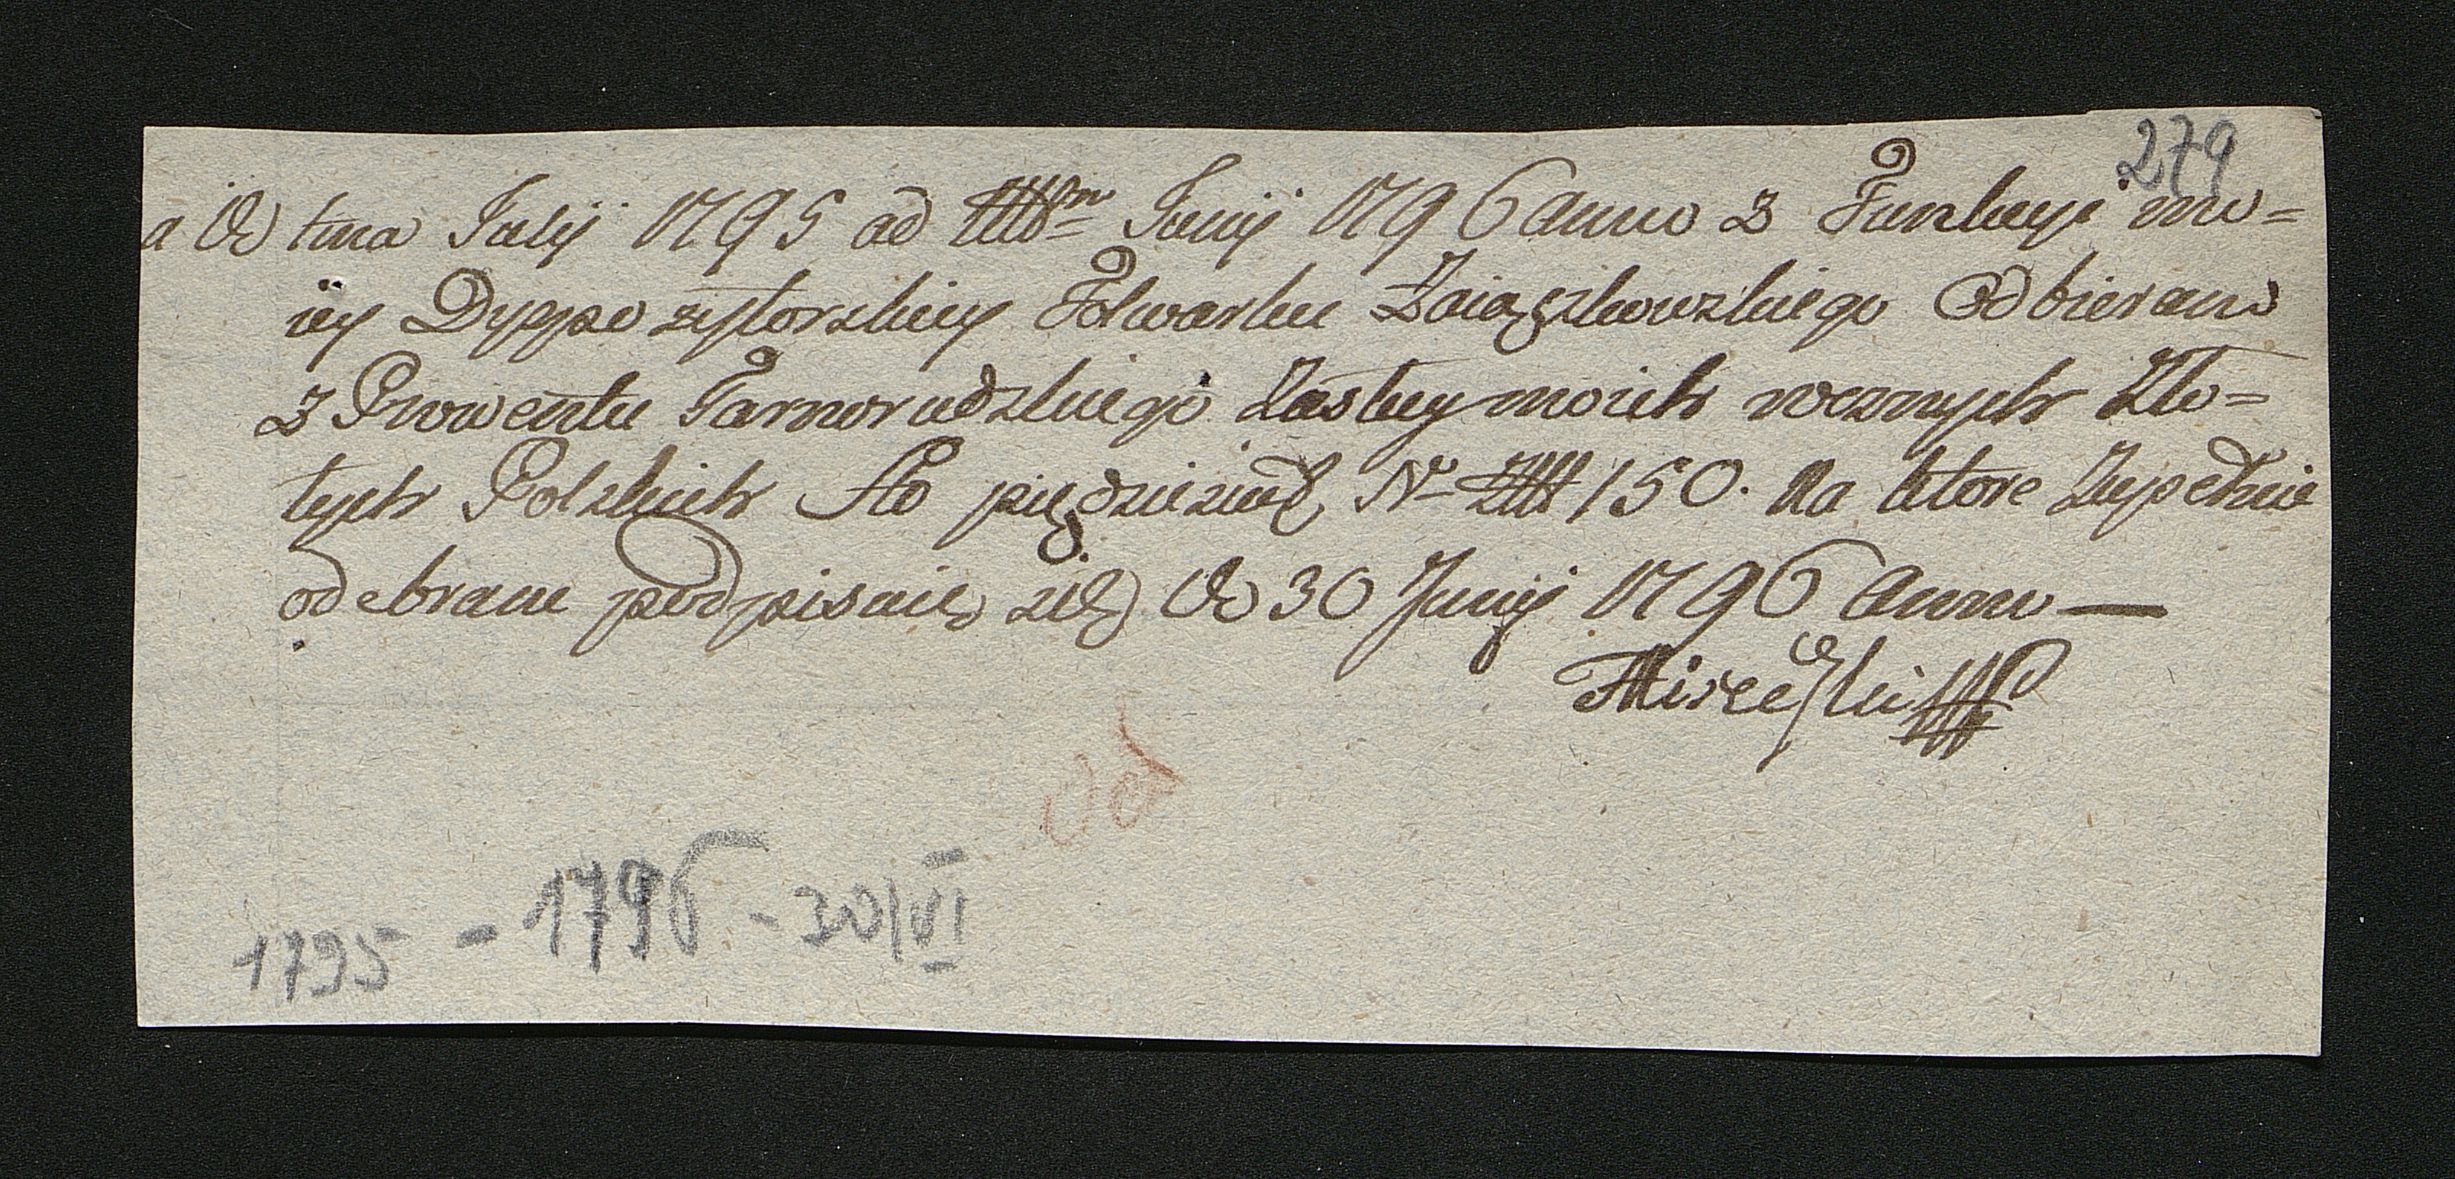 279
a De 1ma Julij 1795 ad ultm Junij 1796 anno z Funkcyi mo=
iey Dyspozytorskiey Folwarku Zaiączkowskiego Odbieram
z Prowentu Tarnorudzkiego Zasług moich rocznych Zło=
tych Polskich Sto pięćdziesiąt No 150. Na ktore Zupełnie
odebrane podpisuię się De 30 Junij 1796 Anno —
1795 - 1796 - 30/VI